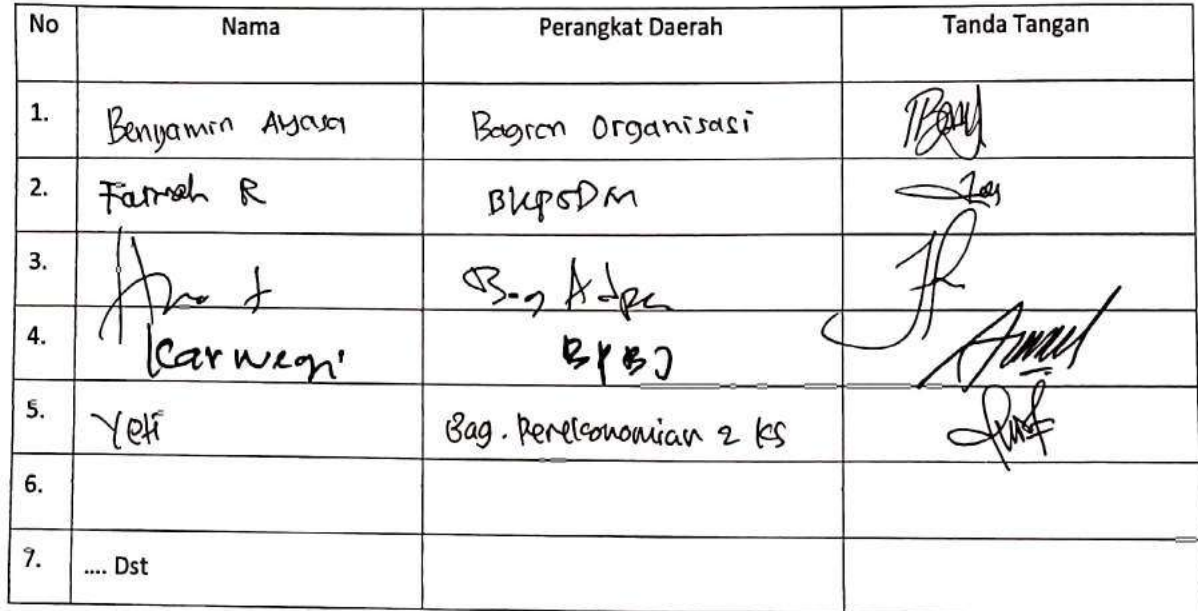 No Nama Perangkat Daerah Tanda Tangan
1. Benyamin Ayasa Bagian Organisasi
2. Farrah R BKPSDM
3. Bag Adpem
4. Karwegi BPBJ
5. Yeti Bag. Perekonomian 2 KS
6.
7. .... Dst